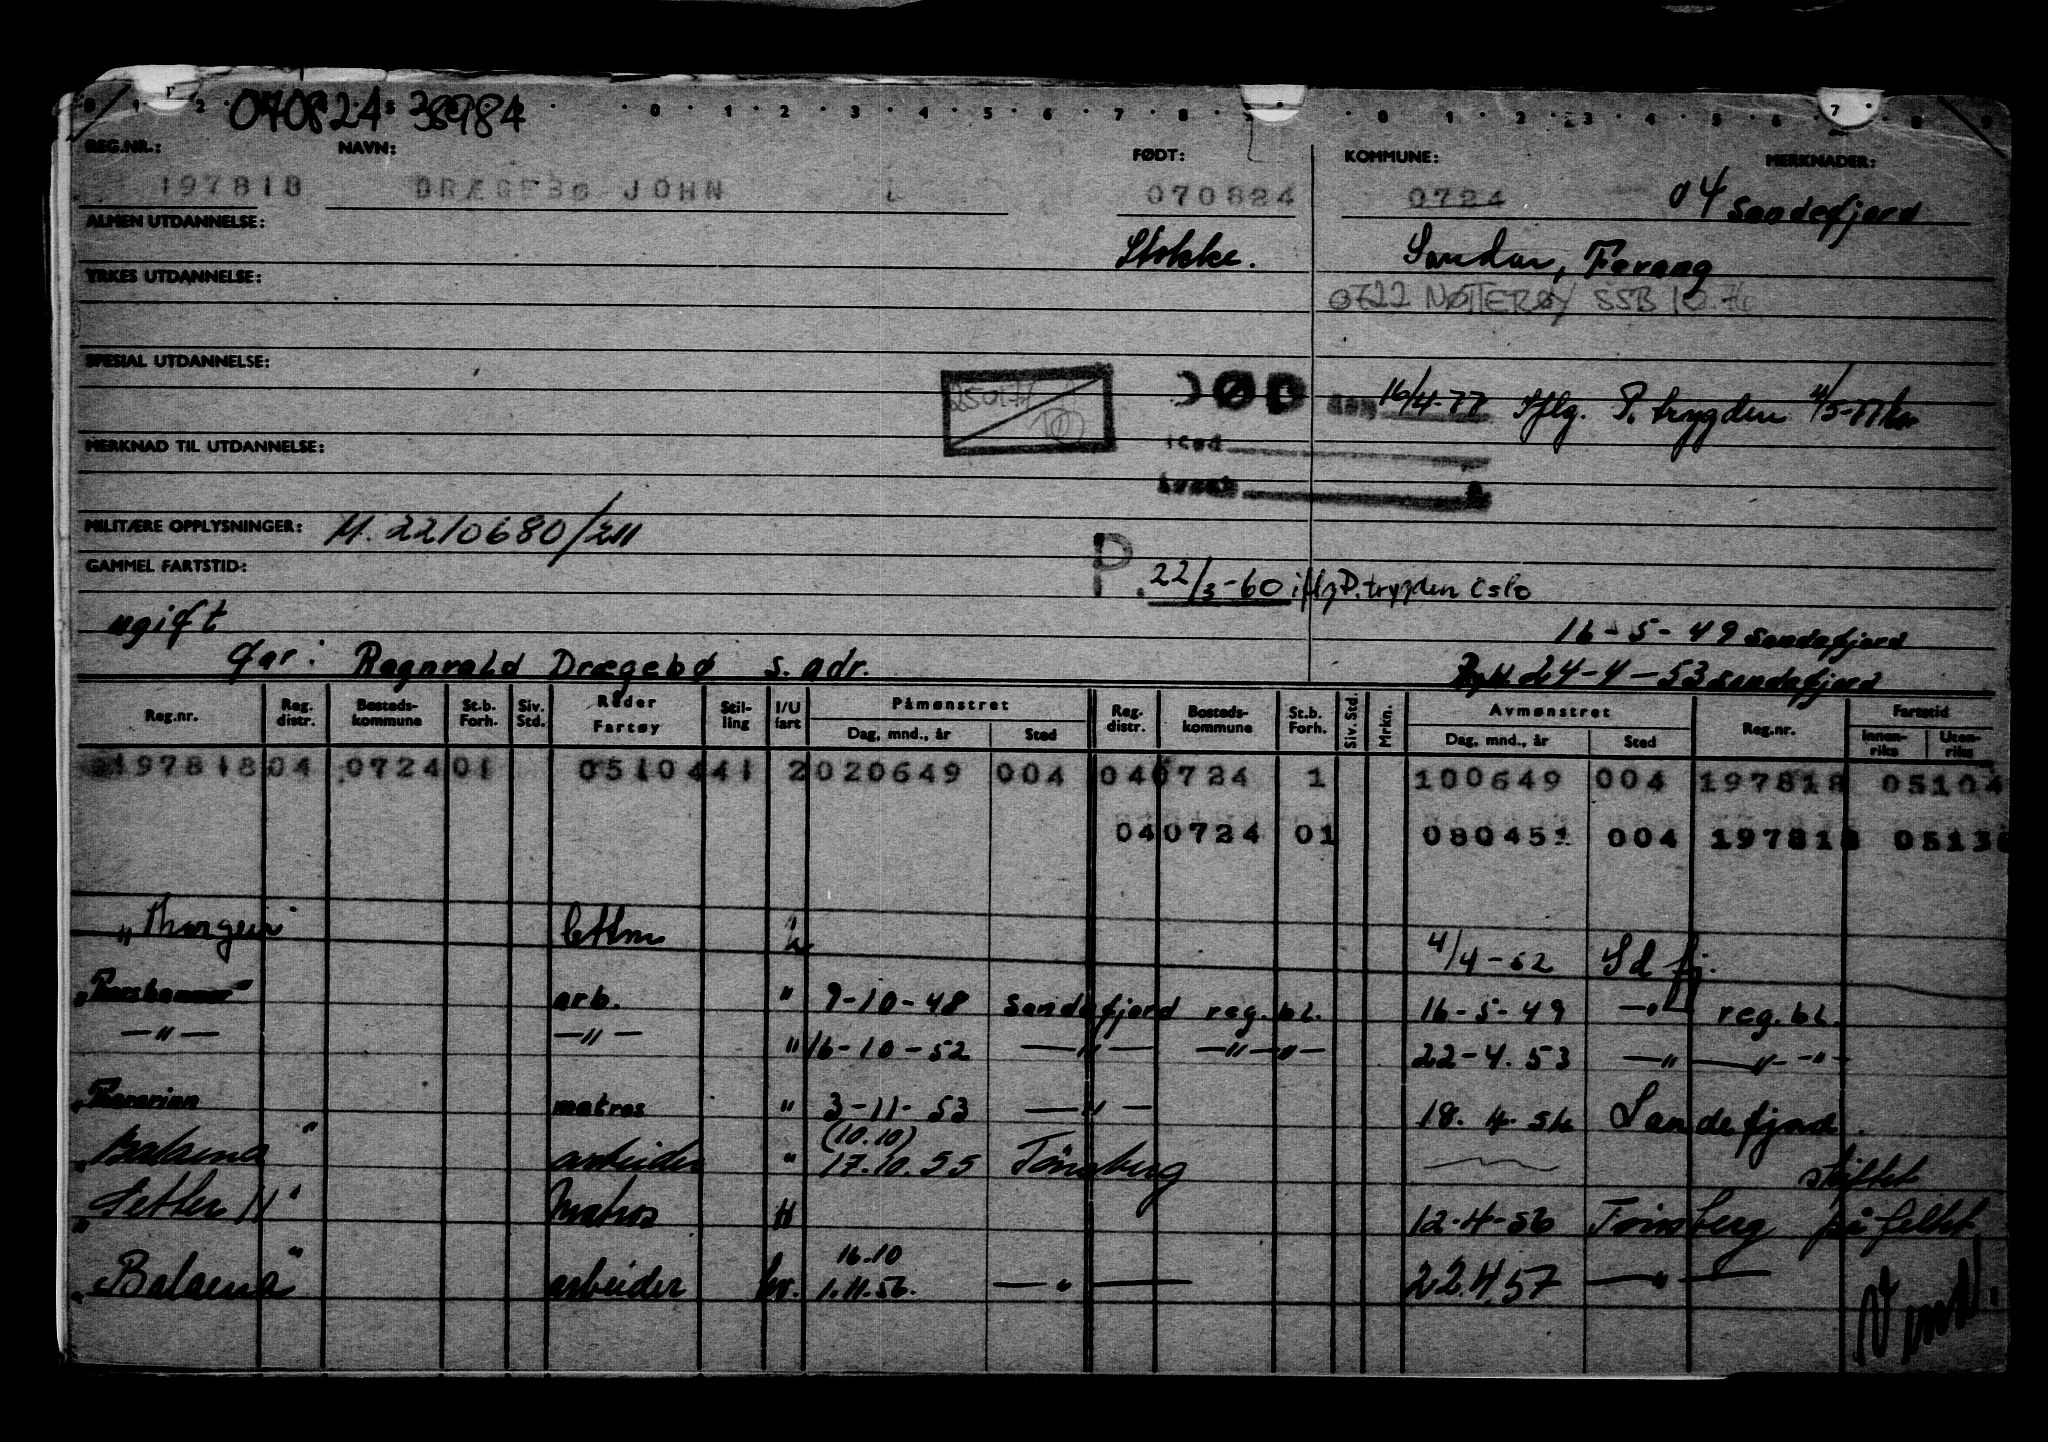 070824 38984
REG.NR.: NAVN: FØDT: KOMMUNE: MERKNADER:
197818 DRÆGEBØ JOHN 070824 0724 04 Sandefjord
ALMEN UTDANNELSE:
Stokke. Sandar, Fevang
YRKES UTDANNELSE:
0722 NØTTERØY SSB 10.76
SPESIAL UTDANNELSE:
DØD 16/4-77 Iflg. P. trygden 4/5-77
MERKNAD TIL UTDANNELSE:
MILITÆRE OPPLYSNINGER: M. 2210680/
GAMMEL FARTSTID:
P. 22/3-60 iflg P.trygden Oslo
ugift 16-5-49 Sandefjord
Far: Ragnvald Drægebø s. adr. 24-4-53 Sandefjord
Reg.nr. Reg. distr. Bosteds-kommune St.b. Forh. Siv. Std. Reder Fartøy Stil-ling I/U fart Påmønstret Dag, mnd., år Sted Reg. distr. Bosteds-kommune St.b. Forh. Siv. Std. Mrkn. Avmønstret Dag, mnd., år Sted Reg.nr. Fartstid Innen-riks Uten-riks
197818 04 0724 01 05104 41 2 020649 004 04 0724 1 100649 004 197818 05104
04 0724 01 080451 004 197818 0513
"Thorgeir" lettm 4/4-52 Sd fj.
"Thorshammer" arb. " 9-10-48 Sandefjord reg. bl. 16-5-49 —"— reg. bl.
—"— —"— " 16-10-52 —"— —"—"— 22-4.53 —"— —"—"—
"Thorarinn matros " 3-11-53 —"— 18.4.54 Sandefjord.
"Balaena" arbeider " (10.10) 17.10.55 Tönsberg skiftet
"Setter II" Matros H 12-4-56 Tönsberg på feltet
"Balaena" arbeider kv. 16.10 1.11.56. —"— 22.4.57 —"—